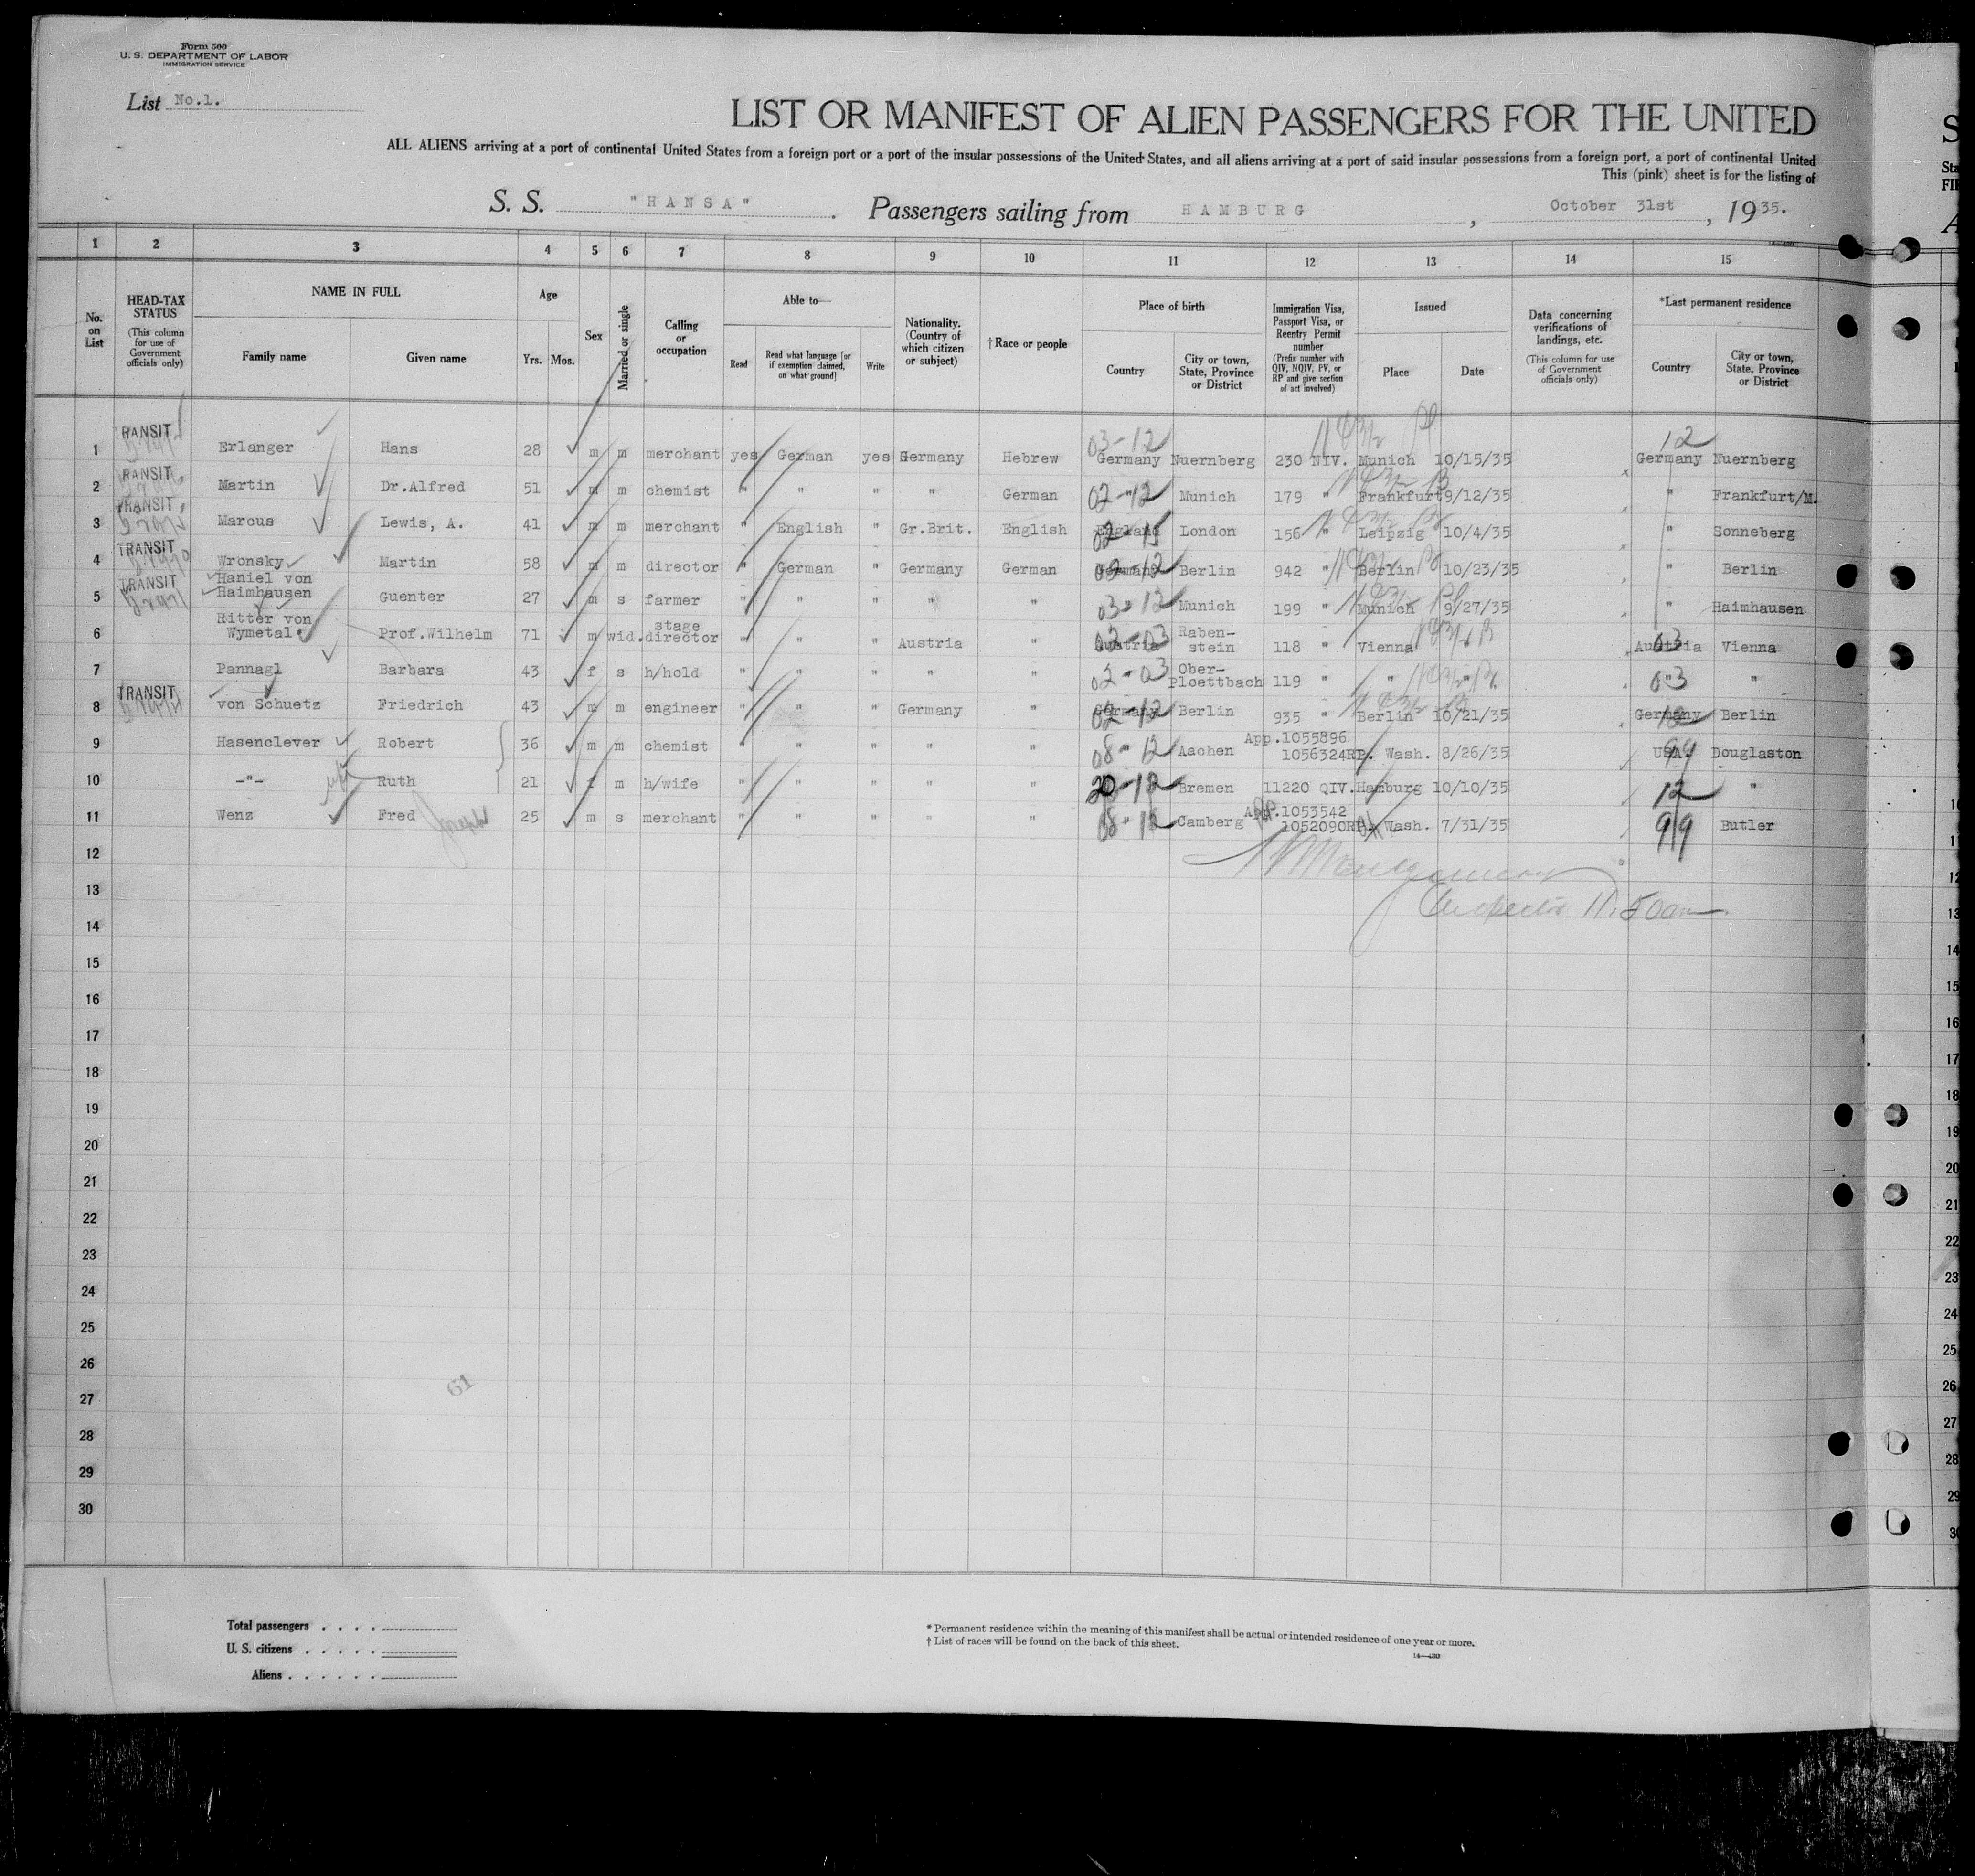 Form 500
U. S. DEPARTMENT OF LABOR
IMMIGRATION SERVICE
List No.1.
LIST OR MANIFEST OF ALIEN PASSENGERS FOR THE UNITED
ALL ALIENS arriving at a port of continental United States from a foreign port or a port of the insular possessions of the United States, and all aliens arriving at a port of said insular possessions from a foreign port, a port of continental United
This (pink) sheet is for the listing of
S. S. "HANSA" . Passengers sailing from HAMBURG , October 31st , 1935.
1 2 3 4 5 6 7 8 9 10 11 12 13 14 15
No. on List
HEAD-TAX STATUS (This column for use of Government officials only)
NAME IN FULL
Family name Given name
Age
Yrs. Mos.
Sex
Married or single
Calling or occupation
Able to—
Read Read what language [or if exemption claimed, on what ground] Write
Nationality. (Country of which citizen or subject)
† Race or people
Place of birth
Country City or town, State, Province or District
Immigration Visa, Passport Visa, or Reentry Permit number (Prefix number with QIV, NQIV, PV, or RP and give section of act involved)
Issued
Place Date
Data concerning verifications of landings, etc. (This column for use of Government officials only)
*Last permanent residence
Country City or town, State, Province or District
RANSIT
03-12 12
1 Erlanger Hans 28 m m merchant yes German yes Germany Hebrew Germany Nuernberg 230 NIV. Munich 10/15/35 Germany Nuernberg
RANSIT
2 Martin Dr.Alfred 51 m m chemist " " " " German 02-12 " Munich 179 " Frankfurt 9/12/35 " Frankfurt/M.
TRANSIT
3 Marcus Lewis, A. 41 m m merchant " English " Gr.Brit. English England 02 15 London 156 " Leipzig 10/4/35 " Sonneberg
TRANSIT
4 Wronsky Martin 58 m m director " German " Germany German Germany 02-12 Berlin 942 " Berlin 10/23/35 " Berlin
TRANSIT
5 Haniel von Haimhausen Guenter 27 m s farmer " " " " " 03-12 " Munich 199 " Munich 9/27/35 " Haimhausen
6 Ritter von Wymetal Prof.Wilhelm 71 m wid. stage director " " " Austria " Austria 02-03 Raben-stein 118 " Vienna Austria 03 Vienna
7 Pannagl Barbara 43 f s h/hold " " " " " 02-03 " Ober-Ploettbach 119 " " " " 03 "
TRANSIT
8 von Schuetz Friedrich 43 m m engineer " " " Germany " Germany 02-12 Berlin 935 " Berlin 10/21/35 Germany 12 Berlin
9 Hasenclever Robert 36 m m chemist " " " " " 08-12 " Aachen App.1055896 1056324RP. Wash. 8/26/35 USA. 99 Douglaston
10 -"- Ruth 21 f m h/wife " " " " " 20-12 Bremen 11220 QIV. Hamburg 10/10/35 12 "
11 Wenz Fred Joseph 25 m s merchant " " " " " 08-12 " Camberg App.1053542 1052090RP. Wash. 7/31/35 99 Butler
12
13
Inspector 11.50am
14
15
16
17
18
19
20
21
22
23
24
25
26
61
27
28
29
30
Total passengers
U. S. citizens
Aliens
* Permanent residence within the meaning of this manifest shall be actual or intended residence of one year or more.
† List of races will be found on the back of this sheet.
14—430